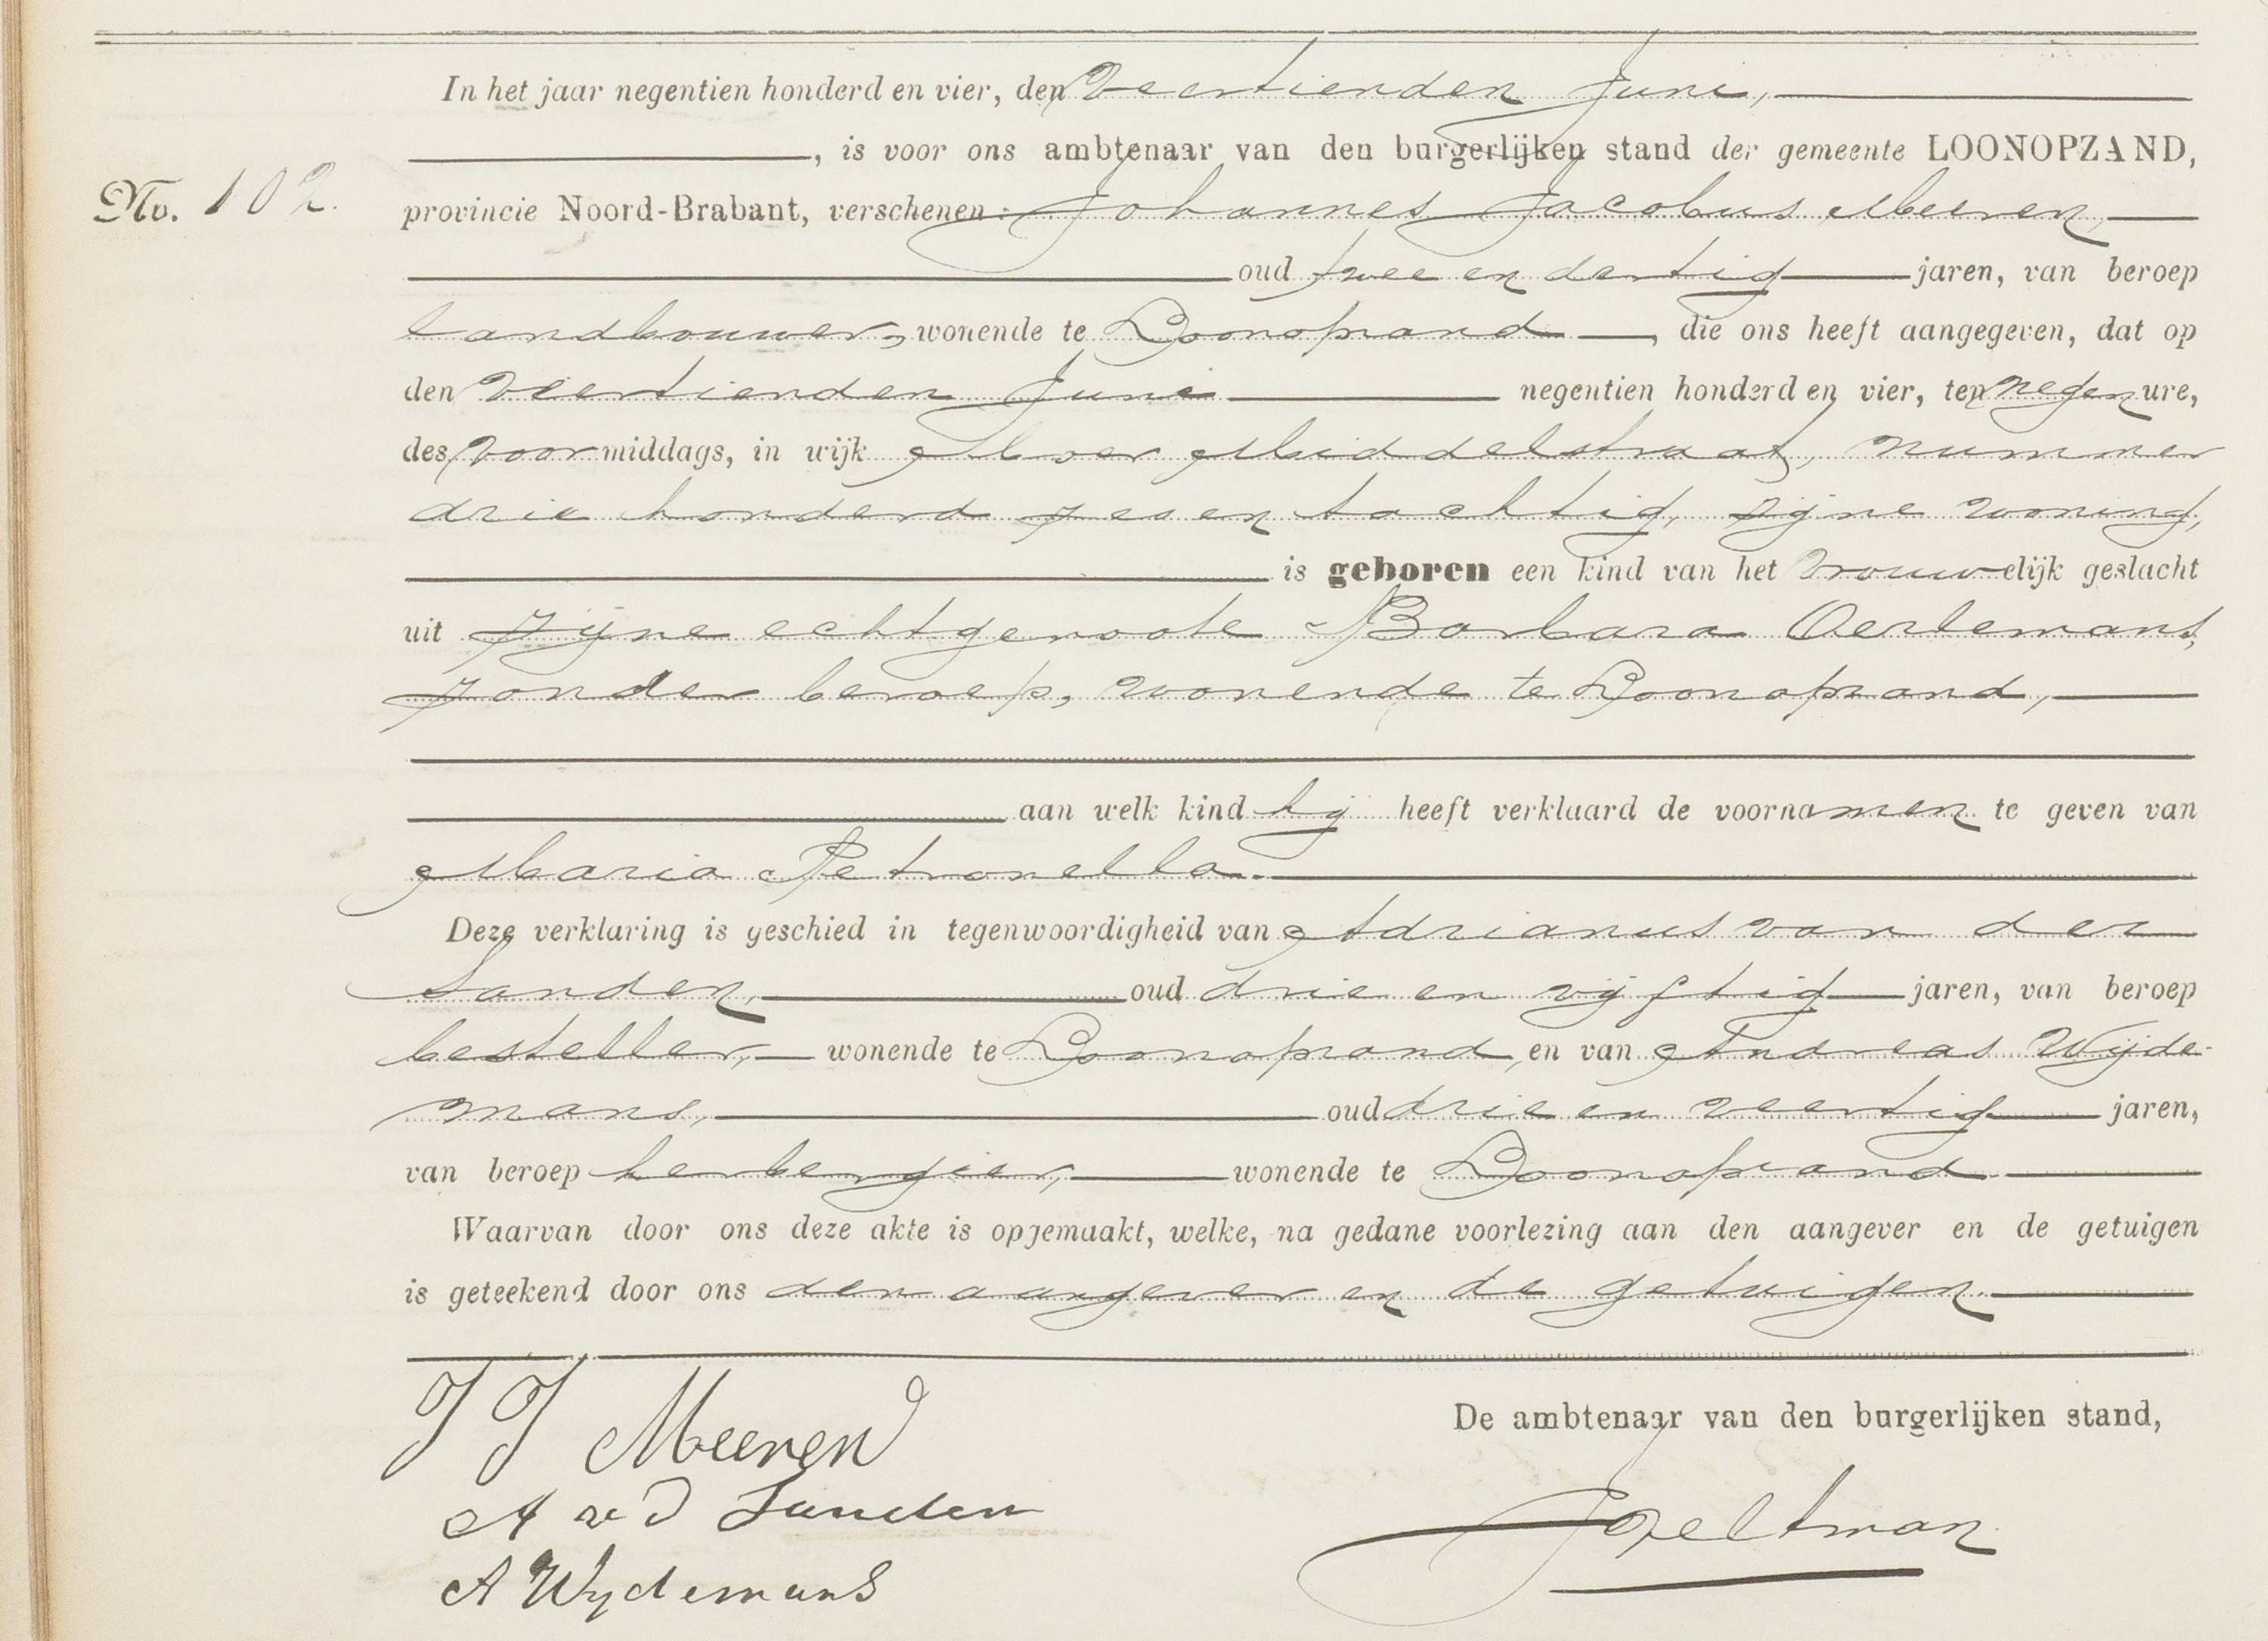 In het jaar negentien honderd en vier, den veertienden Juni,
, is voor ons ambtenaar van den burgerlijken stand der gemeente LOONOPZAND,
No. 102. provincie Noord-Brabant, verschenen: Johannes Jacobus Meeren,
oud twee en dertig jaren, van beroep
landbouwer, wonende te Loonopzand, die ons heeft aangegeven, dat op
den veertienden Juni negentien honderd en vier, ten negen ure,
des voormiddags, in wijk Moer Middelstraat, nummer
drie honderd zes en tachtig, zijne woning,
is geboren een kind van het vrouwelijk geslacht
uit zijne echtgenoote Barbara Oerlemans,
zonder beroep, wonende te Loonopzand,
aan welk kind hij heeft verklaard de voornamen te geven van
Maria Petronella.
Deze verklaring is geschied in tegenwoordigheid van Adrianus van der
Sanden, oud drie en vijftig jaren, van beroep
besteller, wonende te Loonopzand, en van Andreas Wijde-
mans, oud drie en veertig jaren,
van beroep herbergier, wonende te Loonopzand
Waarvan door ons deze akte is opgemaakt, welke, na gedane voorlezing aan den aangever en de getuigen
is geteekend door ons den aangever en de getuigen.
J J Meeren
De ambtenaar van den burgerlijken stand,
A v d Sanden
A Wydemans